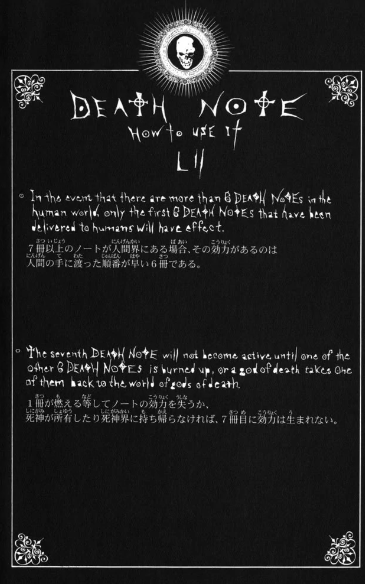 DEATH NOTE
HOW to USE IT
LII
○ In the event that there are more than 6 DEATH NOTEs in the
human world, only the first 6 DEATH NOTEs that have been
delivered to humans will have effect.
7冊以上のノートが人間界にある場合、その効力があるのは
人間の手に渡った順番が早い6冊である。
○ The seventh DEATH NOTE will not become active until one of the
other 6 DEATH NOTEs is burned up, or a god of death takes one
of them back to the world of gods of death.
1冊が燃える等してノートの効力を失うか、
死神が所有したり死神界に持ち帰らなければ、7冊目に効力は生まれない。